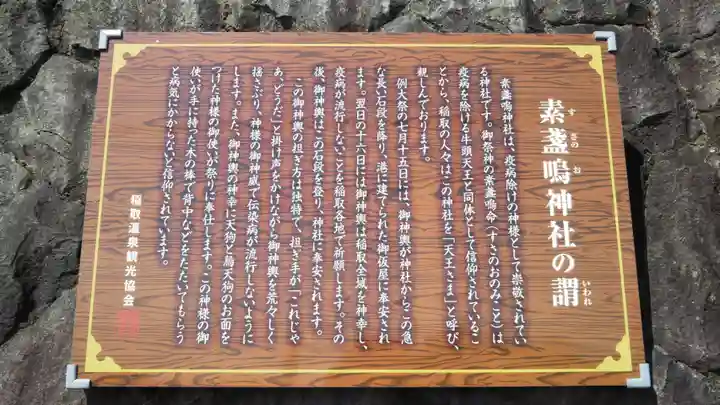 素盞嗚神社の謂
す さのお
いわれ
素盞嗚神社は、疫病除けの神様として崇敬されてい
る神社です。御祭神の素盞嗚命(すさのおのみこと)は
疫病を除ける牛頭天王と同体として信仰されているこ
とから、稲取の人々はこの神社を「天王さま」と呼び、
親しんでおります。
例大祭の七月十五日には、御神輿が神社からこの急
な長い石段を降り、港に建てられた御仮屋に奉安され
ます。翌日の十六日には御神輿は稲取全域を神幸し、
疫病が流行しないことを稲取各地で祈願します。その
後、御神輿はこの石段を登り、神社に奉安されます。
この御神輿の担ぎ方は独特で、担ぎ手が「これじゃ
あ、どうだ」と掛け声をかけながら御神輿を荒々しく
揺さぶり、神様の御神威で伝染病が流行しないように
します。また、御神輿の神幸に天狗と烏天狗のお面を
つけた神様の御使いが祭りに奉仕します。この神様の御
使いが手に持った木の棒で背中などをたたいてもらう
と病気にかからないと信仰されています。
稲取温泉観光協会